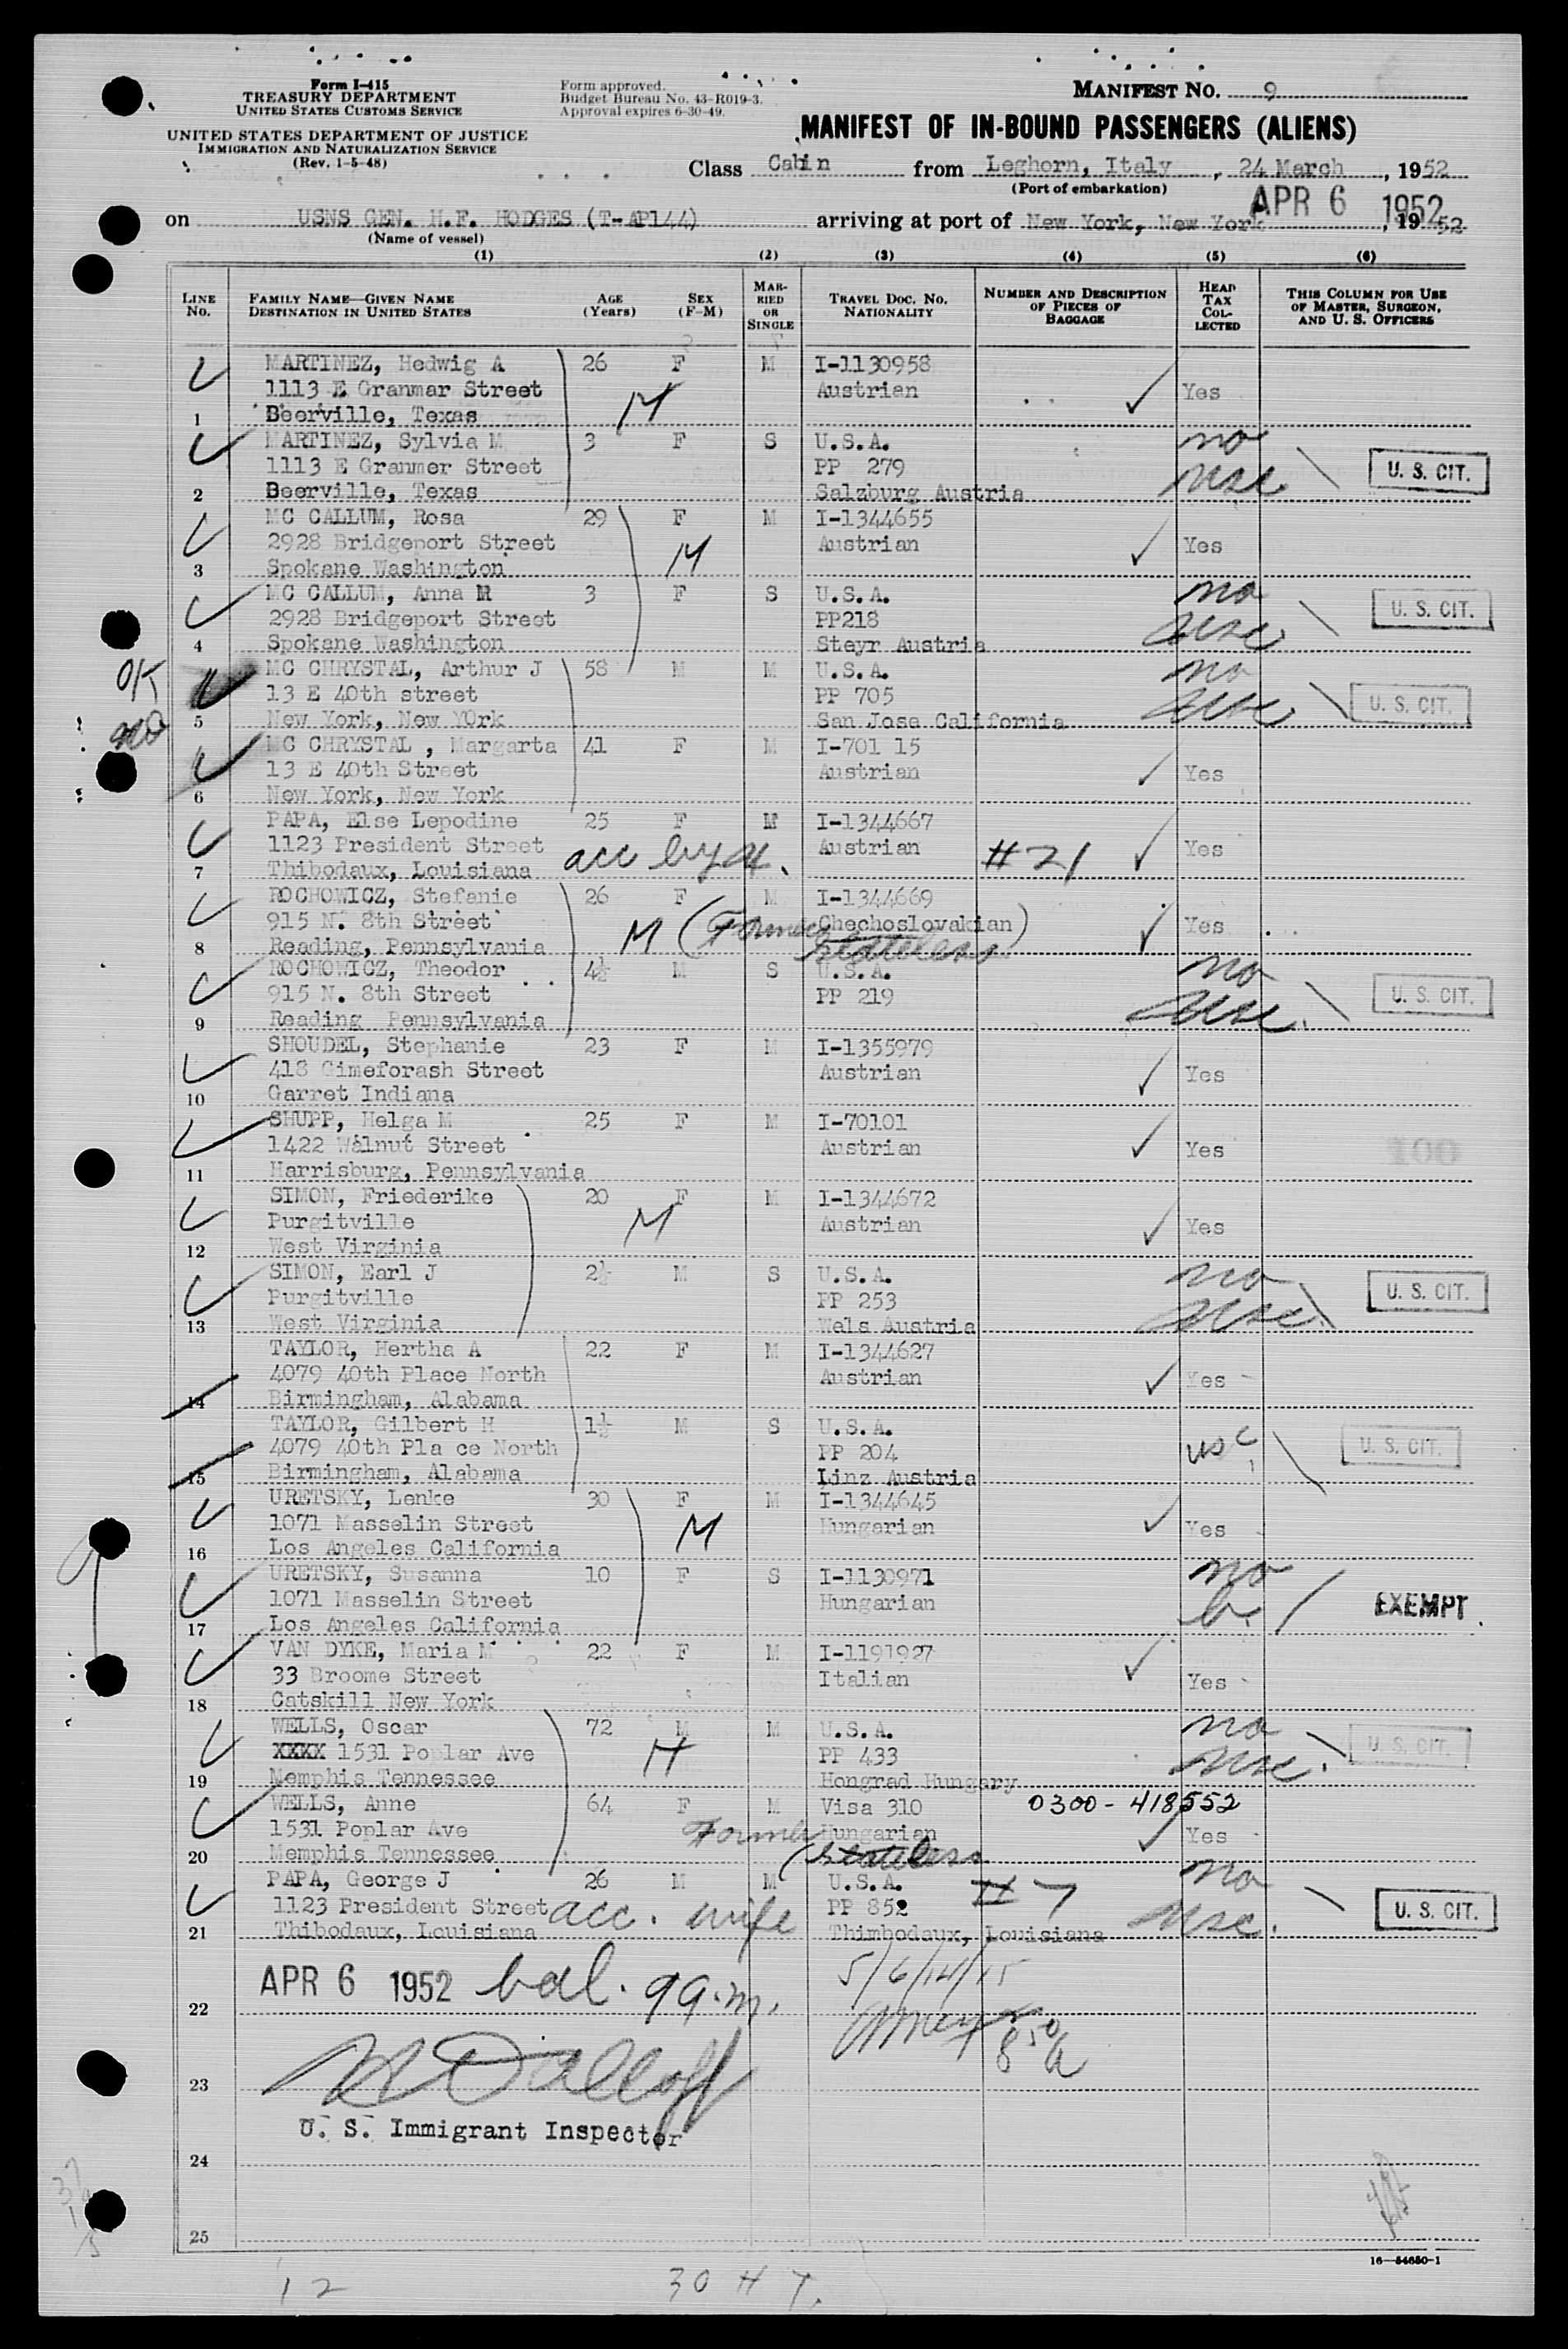 Form I-415
TREASURY DEPARTMENT
UNITED STATES CUSTOMS SERVICE
UNITED STATES DEPARTMENT OF JUSTICE
IMMIGRATION AND NATURALIZATION SERVICE
(Rev. 1-5-48)
Form approved.
Budget Bureau No. 43-R019-3.
Approval expires 6-30-49.
MANIFEST NO. 9
MANIFEST OF IN-BOUND PASSENGERS (ALIENS)
Class Cabin from Leghorn, Italy, 24 March, 1952
(Port of embarkation)
APR 6 1952
on USNS GEN. H.F. HODGES (T-AP144) arriving at port of New York, New York, 1952
(Name of vessel)
(1) (2) (3) (4) (5) (6)
LINE No. FAMILY NAME—GIVEN NAME DESTINATION IN UNITED STATES AGE (Years) SEX (F-M) MARRIED OR SINGLE TRAVEL DOC. NO. NATIONALITY NUMBER AND DESCRIPTION OF PIECES OF BAGGAGE HEAD TAX COLLECTED THIS COLUMN FOR USE OF MASTER, SURGEON, AND U. S. OFFICERS
MARTINEZ, Hedwig A 26 F M I-1130958
1113 E Granmar Street Austrian Yes
1 Beerville, Texas M
MARTINEZ, Sylvia M 3 F S U.S.A. no
1113 E Granmer Street PP 279 usc U. S. CIT.
2 Beerville, Texas Salzburg Austria
MC CALLUM, Rosa 29 F M I-1344655
2928 Bridgeport Street M Austrian Yes
3 Spokane Washington
MC CALLUM, Anna M 3 F S U.S.A. no
2928 Bridgeport Street PP218 usc U. S. CIT.
4 Spokane Washington Steyr Austria
OK MC CHRYSTAL, Arthur J 58 M M U.S.A. no
13 E 40th street PP 705 usc U. S. CIT.
5 New York, New YOrk San Jose California
MC CHRYSTAL , Margarta 41 F M I-701 15
13 E 40th Street Austrian Yes
6 New York, New York
PAPA, Else Lepodine 25 F M I-1344667
1123 President Street acc by H. Austrian #21 Yes
7 Thibodaux, Louisiana
ROCHOWICZ, Stefanie 26 F M I-1344669
915 N. 8th Street M (Former Chechoslovakian) Yes
8 Reading, Pennsylvania Stateless
ROCHOWICZ, Theodor 4½ M S U.S.A. no
915 N. 8th Street PP 219 usc. U. S. CIT.
9 Reading Pennsylvania
SHOUDEL, Stephanie 23 F M I-1355979
418 Cimeforash Street Austrian Yes
10 Garret Indiana
SHUPP, Helga M 25 F M I-70101
1422 Walnut Street Austrian Yes
11 Harrisburg, Pennsylvania
SIMON, Friederike 20 F M I-1344672
Purgitville M Austrian Yes
12 West Virginia
SIMON, Earl J 2½ M S U.S.A. no
Purgitville PP 253 usc. U. S. CIT.
13 West Virginia Wels Austria
TAYLOR, Hertha A 22 F M I-1344627
4079 40th Place North Austrian Yes
14 Birmingham, Alabama
TAYLOR, Gilbert H 1½ M S U.S.A.
4079 40th Pla ce North PP 204 usc U. S. CIT.
15 Birmingham, Alabama Linz Austria
URETSKY, Lenke 30 F M I-1344645
1071 Masselin Street M Hungarian Yes
16 Los Angeles California
URETSKY, Susanna 10 F S I-1130971 no
1071 Masselin Street Hungarian EXEMPT
17 Los Angeles California
VAN DYKE, Maria M 22 F M I-1191927
33 Broome Street Italian Yes
18 Catskill New York
WELLS, Oscar 72 M M U.S.A. no
XXXX 1531 Poplar Ave H PP 433 usc. U. S. CIT.
19 Memphis Tennessee Hongrad Hungary
WELLS, Anne 64 F M Visa 310 0300-418552
1531 Poplar Ave Former Hungarian Yes
20 Memphis Tennessee (Stateless
PAPA, George J 26 M M U.S.A. #7 no
1123 President Street acc. wife PP 852 usc. U. S. CIT.
21 Thibodaux, Louisiana Thimbodaux, Louisiana
APR 6 1952 bal. 9 a.m. 5/6/14/15
22
850 a
23
U. S. Immigrant Inspector
24
25
16—54650-1
12 30 H T.